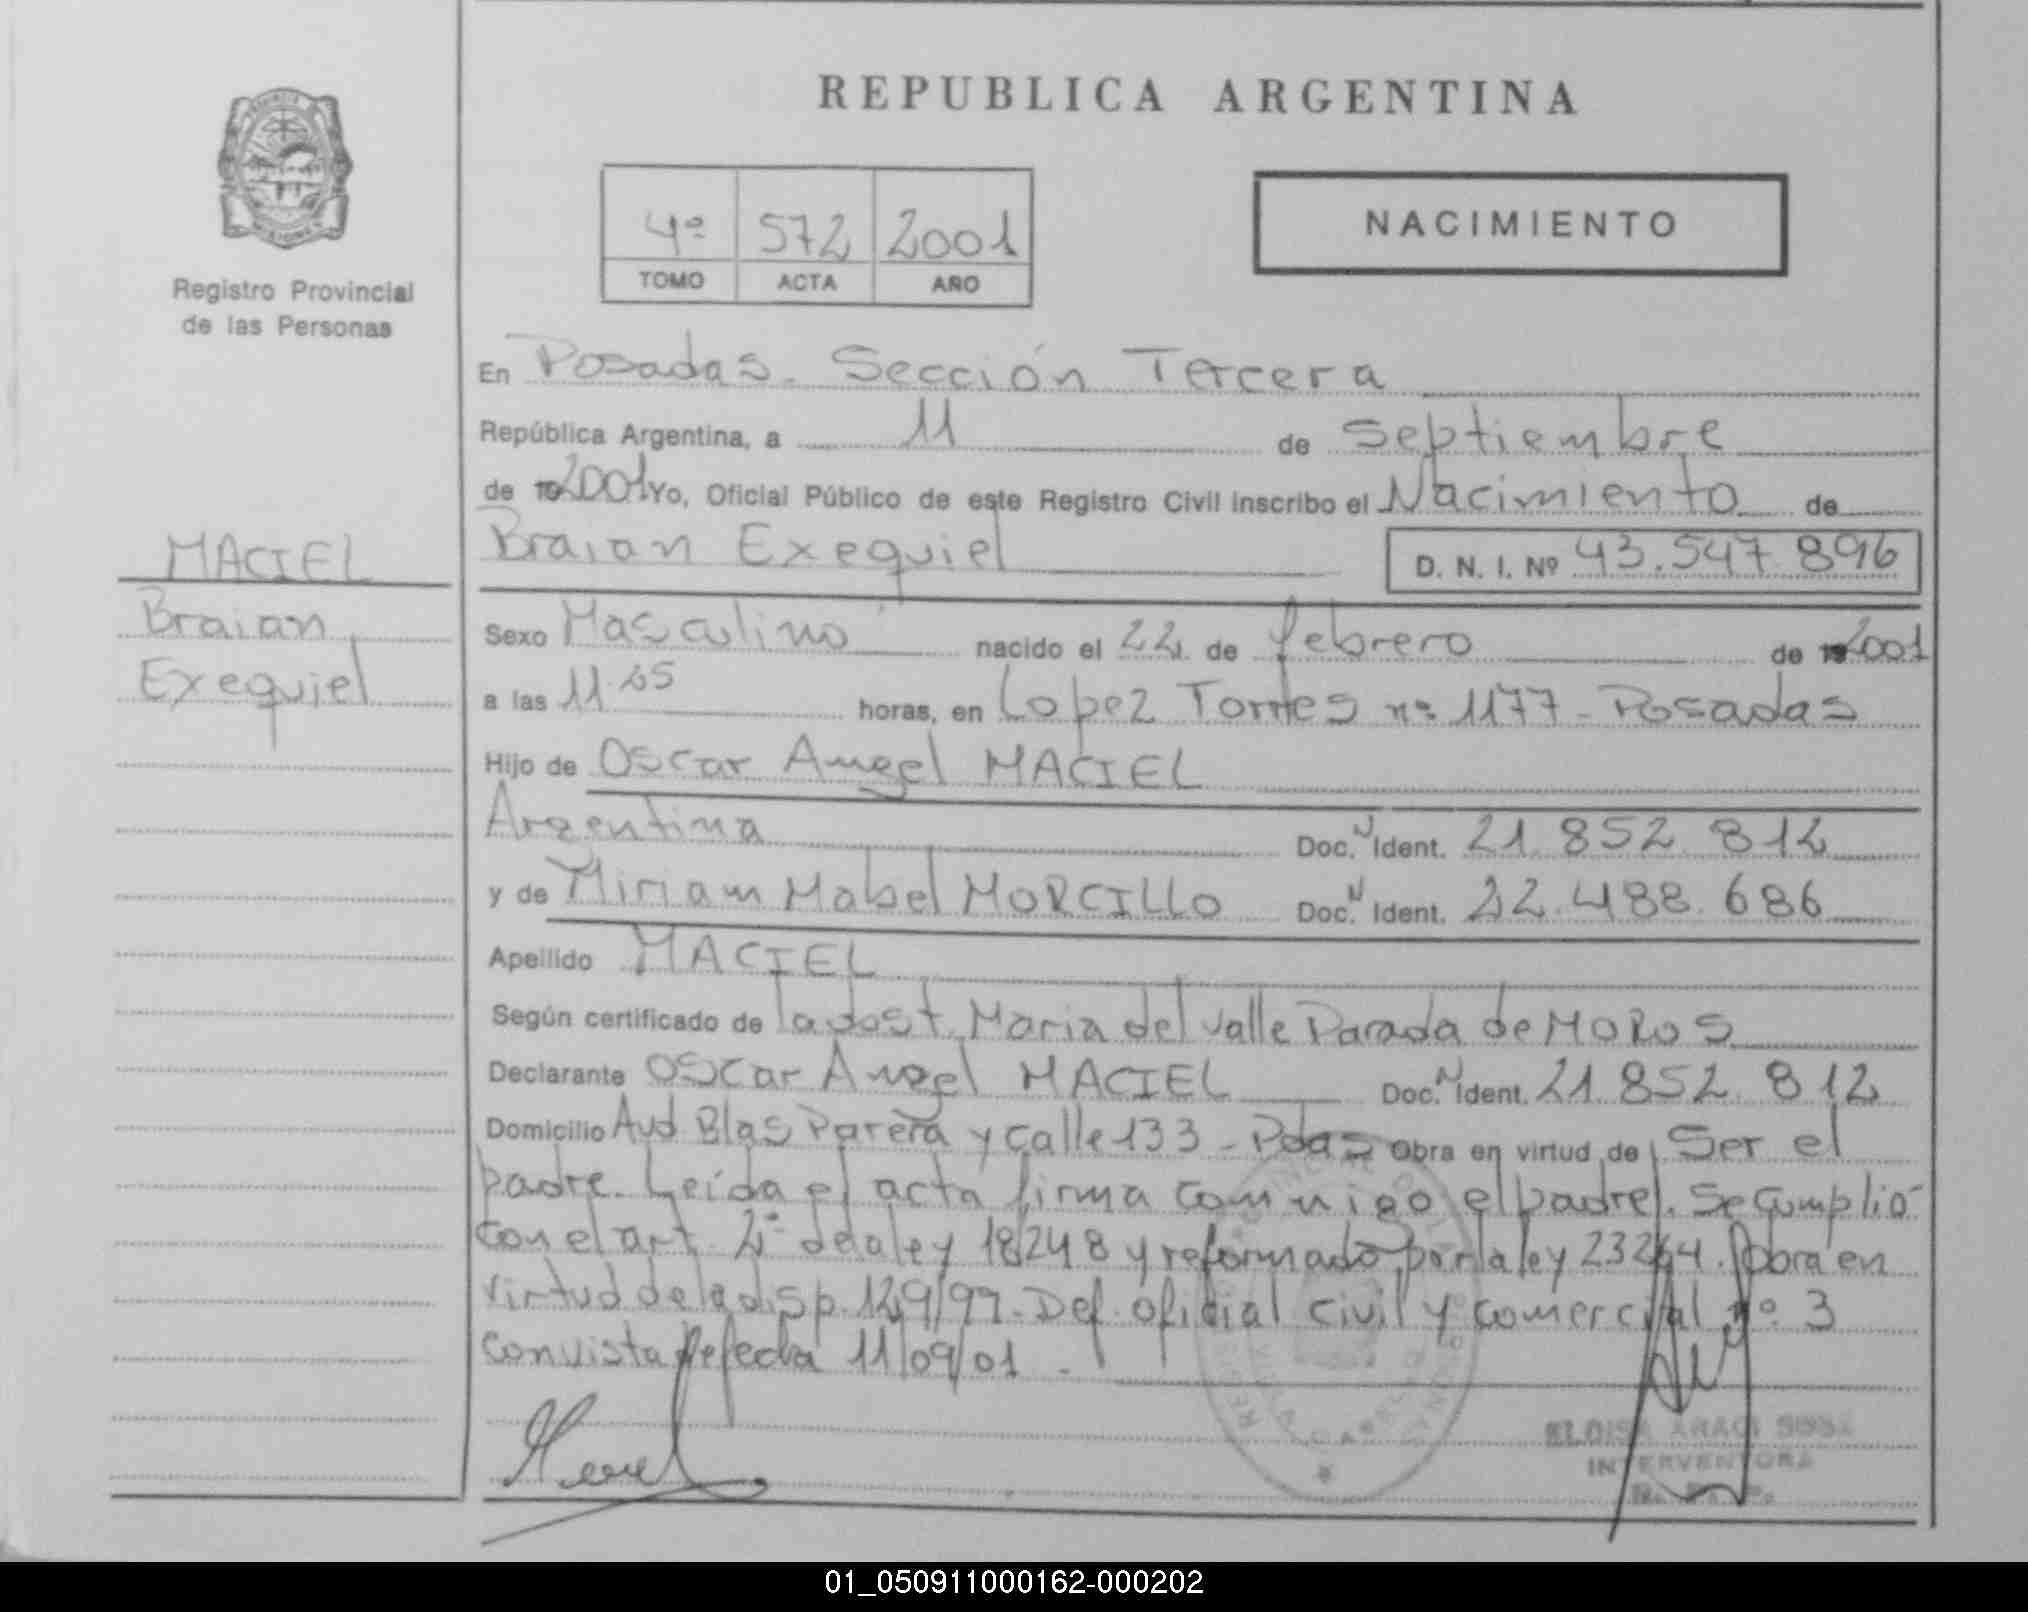 REPUBLICA ARGENTINA
4º 572 2001
TOMO ACTA AÑO
NACIMIENTO
Registro Provincial
de las Personas
MACIEL
Braian
Exequiel
En Posadas. Sección Tercera
República Argentina, a 11 de Septiembre
de 2001 Yo, Oficial Público de este Registro Civil inscribo el Nacimiento de
Braian Exequiel D. N. I. Nº 43.547.896
Sexo Masculino nacido el 22 de febrero de 2001
a las horas, en Lopez Torres nº 1177 - Posadas
Hijo de Oscar Angel MACIEL
Argentina Doc. N Ident. 21.852.812
y de Miriam Mabel MORCILLO Doc. N Ident. 22.488.686
Apellido MACIEL
Según certificado de la Maria del Valle Parada de MOROS
Declarante Oscar Angel MACIEL Doc. N Ident. 21.852.812
Domicilio Avd Blas Parera y calle 133 - Pdas Obra en virtud de Ser el
padre. Leída el acta firma conmigo el padre. Se cumplió
con el art. 2º de la ley 18248 y reformado por la ley 23264. Obra en
virtud de la disp. 129/97. Def. oficial civil y comercial nº 3
con vista de fecha 11/09/01.
ELOISA ARACI SOSA
INTERVENTORA
R. P. P.
01_050911000162-000202